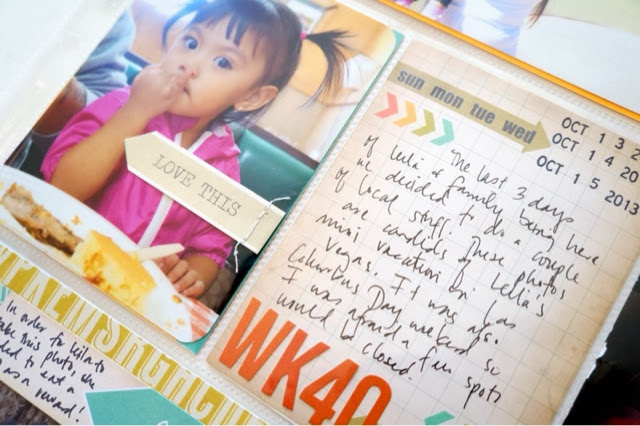 LOVE THIS
sun mon tue wed
OCT 1 3 2
OCT 1 4 20
OCT 1 5 2013
The last 3 days
of Leila & family being here
we decided to do a couple
of local stuff. These photos
are candids of Leila's
mini vacation in Las
Vegas. It was also
Columbus Day weekend so
I was afraid a few spots
would be closed.
WK40
In order to Leila to
take this photo, we
ded to eat a
as a reward!